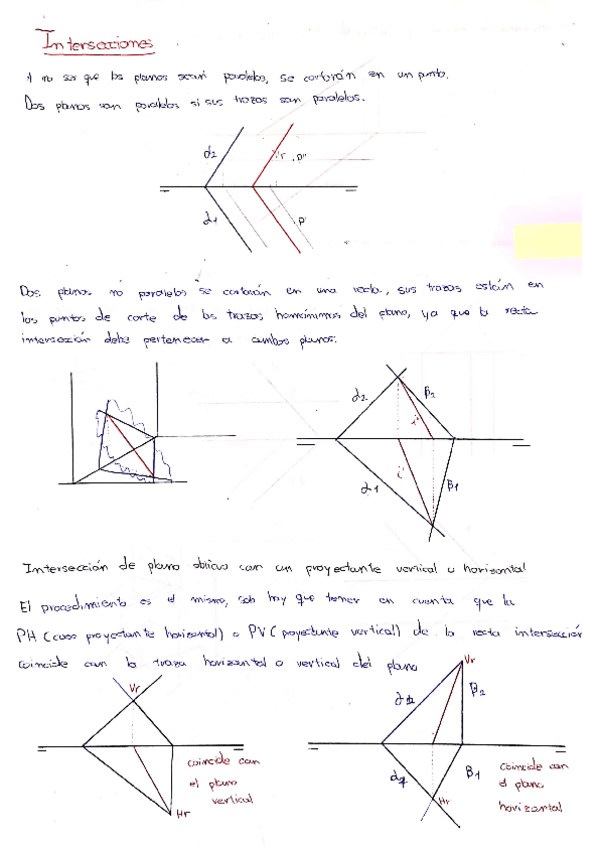 Intersecciones
A no ser que los planos sean paralelos, se cortarán en un punto.
Dos planos son paralelos si sus trazas son paralelas.
α2
Vr
P''
α1
P'
Dos planos no paralelos se cortarán en una recta, sus trazas están en
los puntos de corte de las trazas homónimas del plano, ya que la recta
intersección debe pertenecer a ambos planos:
α2
β2
i''
i'
α1
β1
Intersección de plano oblicuo con un proyectante vertical u horizontal
El procedimiento es el mismo, solo hay que tener en cuenta que la
PH (caso proyectante horizontal) o PV (proyectante vertical) de la recta intersección
coincide con la traza horizontal o vertical del plano
Vr
Hr
coincide con
el plano
vertical
Vr
α2
β2
α1
β1
Hr
Coincide con
el plano
horizontal